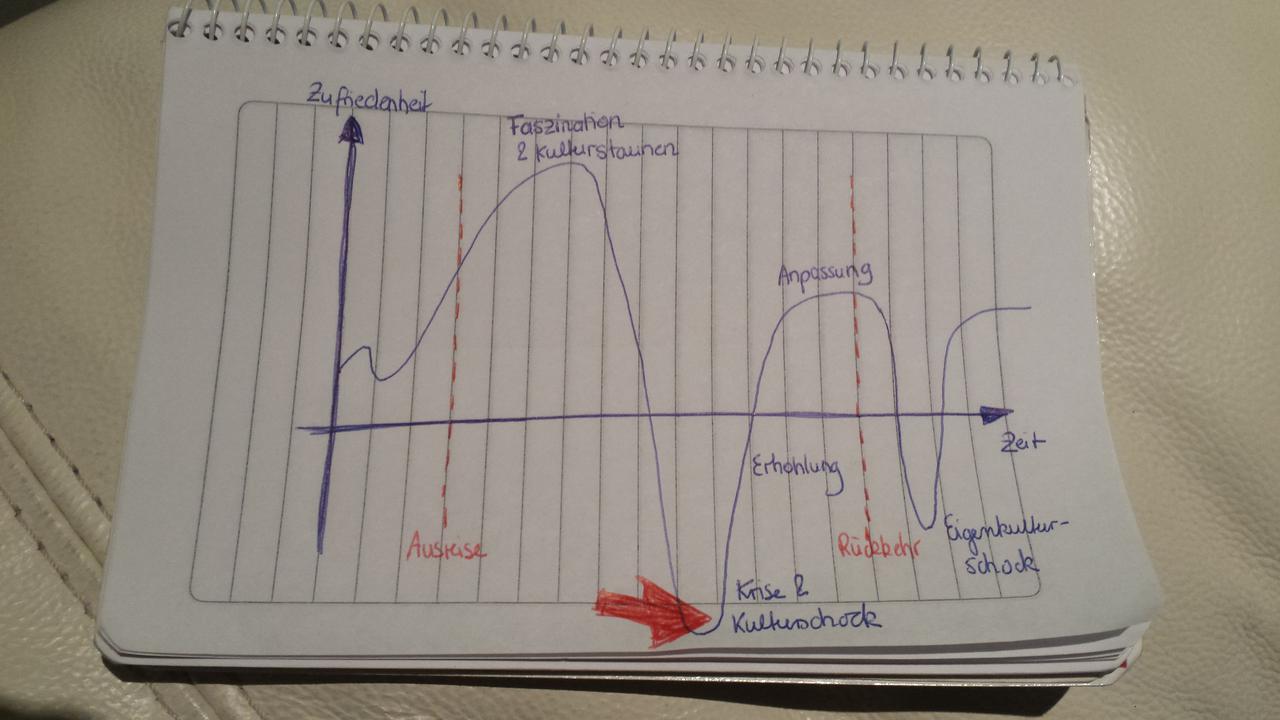 Zufriedenheit
Faszination
& Kulturstaunen
Anpassung
Zeit
Erhohlung
Ausreise
Rückkehr
Eigenkultur-
schock
Krise &
Kulturschock